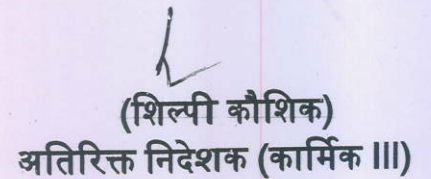 (शिल्पी कौशिक)
अतिरिक्त निदेशक (कार्मिक III)